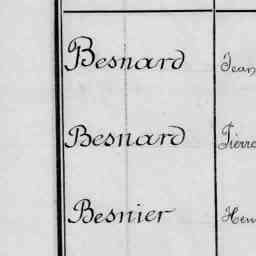 Besnard Jean
Besnard Pierre
Besnier Hen